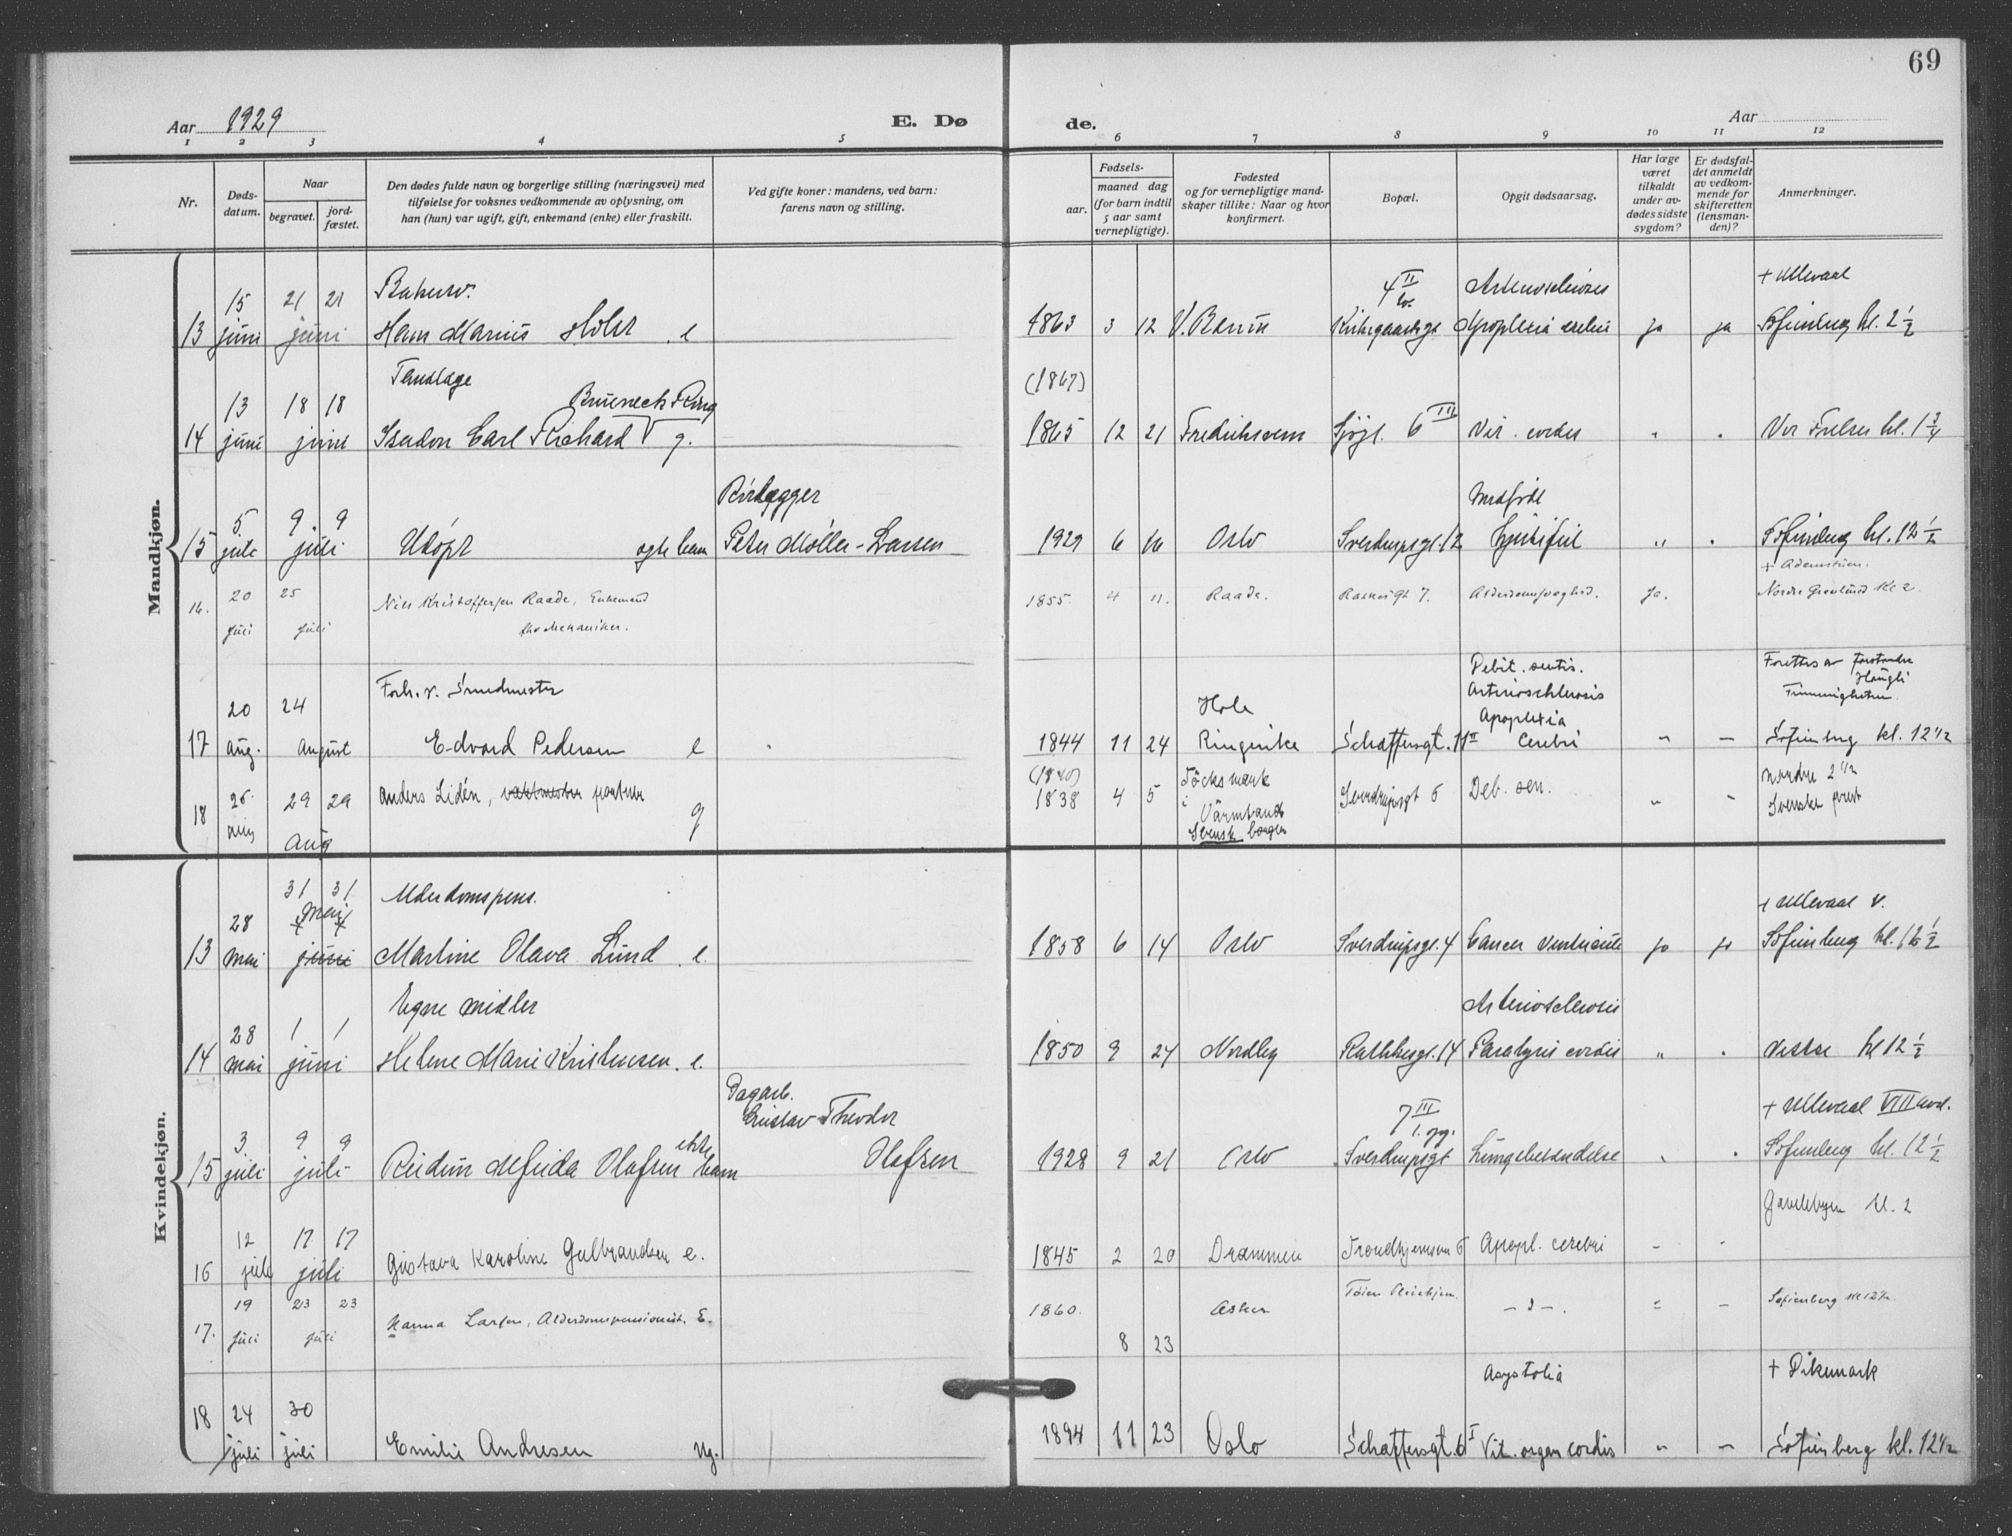 69
Aar 1929
E. Dø
de.
Aar
1 2 3 4 5 6 7 8 9 10 11 12
Nr.
Døds-
datum.
Naar
begravet.
jord-
fæstet.
Den dødes fulde navn og borgerlige stilling (næringsvei) med
tilføielse for voksnes vedkommende av oplysning, om
han (hun) var ugift, gift, enkemand (enke) eller fraskilt.
Ved gifte koner: mandens, ved barn:
farens navn og stilling.
Fødsels-
aar.
maaned dag
(for barn indtil
5 aar samt
vernepligtige).
Fødested
og for vernepligtige mand-
skaper tillike: Naar og hvor
konfirmert.
Bopæl.
Opgit dødsaarsag.
Har læge
været
tilkaldt
under av-
dødes sidste
sygdom?
Er dødsfal-
det anmeldt
av vedkom-
mende for
skifteretten
(lensman-
den)?
Anmerkninger.
Mandkjøn.
15 21 21 4 II Arteriosclerosis + Ullevaal
13 juni juni Hans Marius Holst e 1863 3 12 V. Bærum Kirkegaardsgt Apoplexia cerebri ja ja Sofienberg kl. 2 1/2
(1867)
13 18 18
14 juni juni Isadon Carl Richard g. 1865 12 21 Fredriksvern 6 III Vit. cordis " " Vor Frelser kl. 1 3/4
5 9 9 Medfødt
15 juli juli Udøpt egte barn Peter Møller-Larsen 1929 6 16 Oslo Sverdrupsgt. 12 hjertefeil " " Sofienberg kl. 12 1/2
16. 20 25 Nils Kristoffersen Raade, Enkemand 1855. 4 11. Raade. Rathkesgt 7. Alderdomssvaghed. Ja. Nordre Gravlund kl 2
juli juli fhv Mekaniker.
Forh. v. Smedmester Debit. senilis. Forrettet av forstander
Haugli
20 24 Hole Arteriosclerosis Frimenigheten.
Apoplexia
17 aug. August Edvard Pedersen e 1844 11 24 Ringerike Schaffersgt. 11 II Cerebri " — Sofienberg kl. 12 1/2
(1840) Töcksmark nordre 2 1/2
18 26 29 29 Anders Lidén, vaktmester portner g 1838 4 5 i Sverdrupsgt 5 Deb. sen. " — Svenske prest
Aug Värmland
Svensk borger
Kvindekjøn.
31 31 Alderdomspens. + Ullevaal v.
28 mai
13 mai juni Martine Olava Lund . e. 1858 6 14 Oslo Sverdrupsgt. 4 Cancer ventriculi ja ja Sofienberg kl. 12 1/2
Egne midler Arteriosclerosis
28 1 1
14 mai juni Helene Marie Kristensen . e. 1850 9 24 Nordby Rathkesgt. 14 Paralysis cordis " " Vestre kl 12 1/2
Dagarb.
Gustav Theodor 7 III + Ullevaal VIII avd.
3. 9 9 o. g.
15 juli juli Reidun Alfrida Olafsen ekte barn Olafsen 1928 9 21 Oslo Sverdrupsgt Lungebetændelse " " Sofienberg kl. 12 1/2
Gamlebyen kl. 2
12 17 17
16 juli juli Gustava Karoline Gulbrandsen e. 1845 2 20 Drammen Trondhjemsvn 5 Apopl. cerebri — "
19 23 23 Tøien Pleiehjem.
17. juli juli Hanna Larsen, Alderdomspensionist. E. 1860. 8 23 Asker — " — . = — Sofienberg kl 12 1/2.
Asystolia + Dikemark
24 30
18 juli juli Emilie Andresen ug. 1894 11 23 Oslo Schaffersgt. 6 I Vit. organ cordis " — Sofienberg kl. 12 1/2